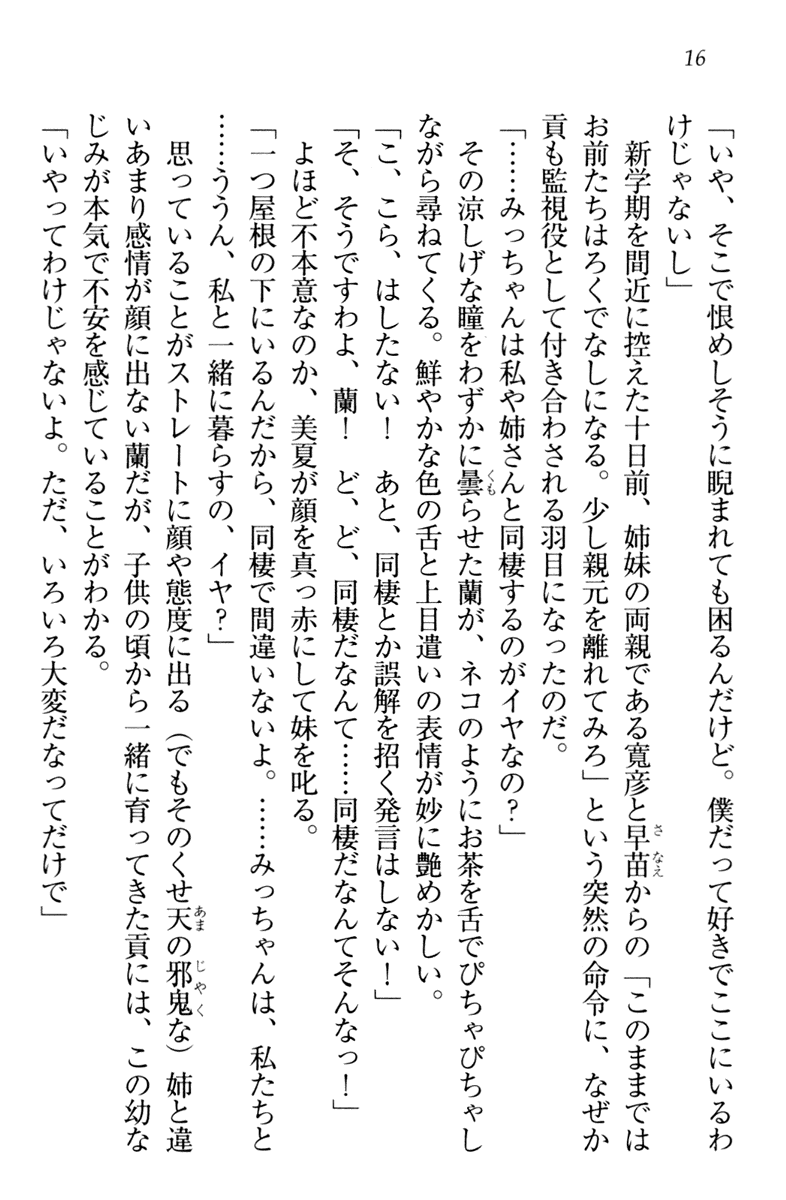 16
「いや、そこで恨めしそうに睨まれても困るんだけど。僕だって好きでここにいるわ
けじゃないし」
　新学期を間近に控えた十日前、姉妹の両親である寛彦と早苗からの「このままでは
お前たちはろくでなしになる。少し親元を離れてみろ」という突然の命令に、なぜか
貢も監視役として付き合わされる羽目になったのだ。
「……みっちゃんは私や姉さんと同棲するのがイヤなの？」
　その涼しげな瞳をわずかに曇らせた蘭が、ネコのようにお茶を舌でぴちゃぴちゃし
ながら尋ねてくる。鮮やかな色の舌と上目遣いの表情が妙に艶めかしい。
「こ、こら、はしたない！　あと、同棲とか誤解を招く発言はしない！」
「そ、そうですわよ、蘭！　ど、ど、同棲だなんて……同棲だなんてそんなっ！」
　よほど不本意なのか、美夏が顔を真っ赤にして妹を叱る。
「一つ屋根の下にいるんだから、同棲で間違いないよ。……みっちゃんは、私たちと
……ううん、私と一緒に暮らすの、イヤ？」
　思っていることがストレートに顔や態度に出る（でもそのくせ天の邪鬼な）姉と違
いあまり感情が顔に出ない蘭だが、子供の頃から一緒に育ってきた貢には、この幼な
じみが本気で不安を感じていることがわかる。
「いやってわけじゃないよ。ただ、いろいろ大変だなってだけで」